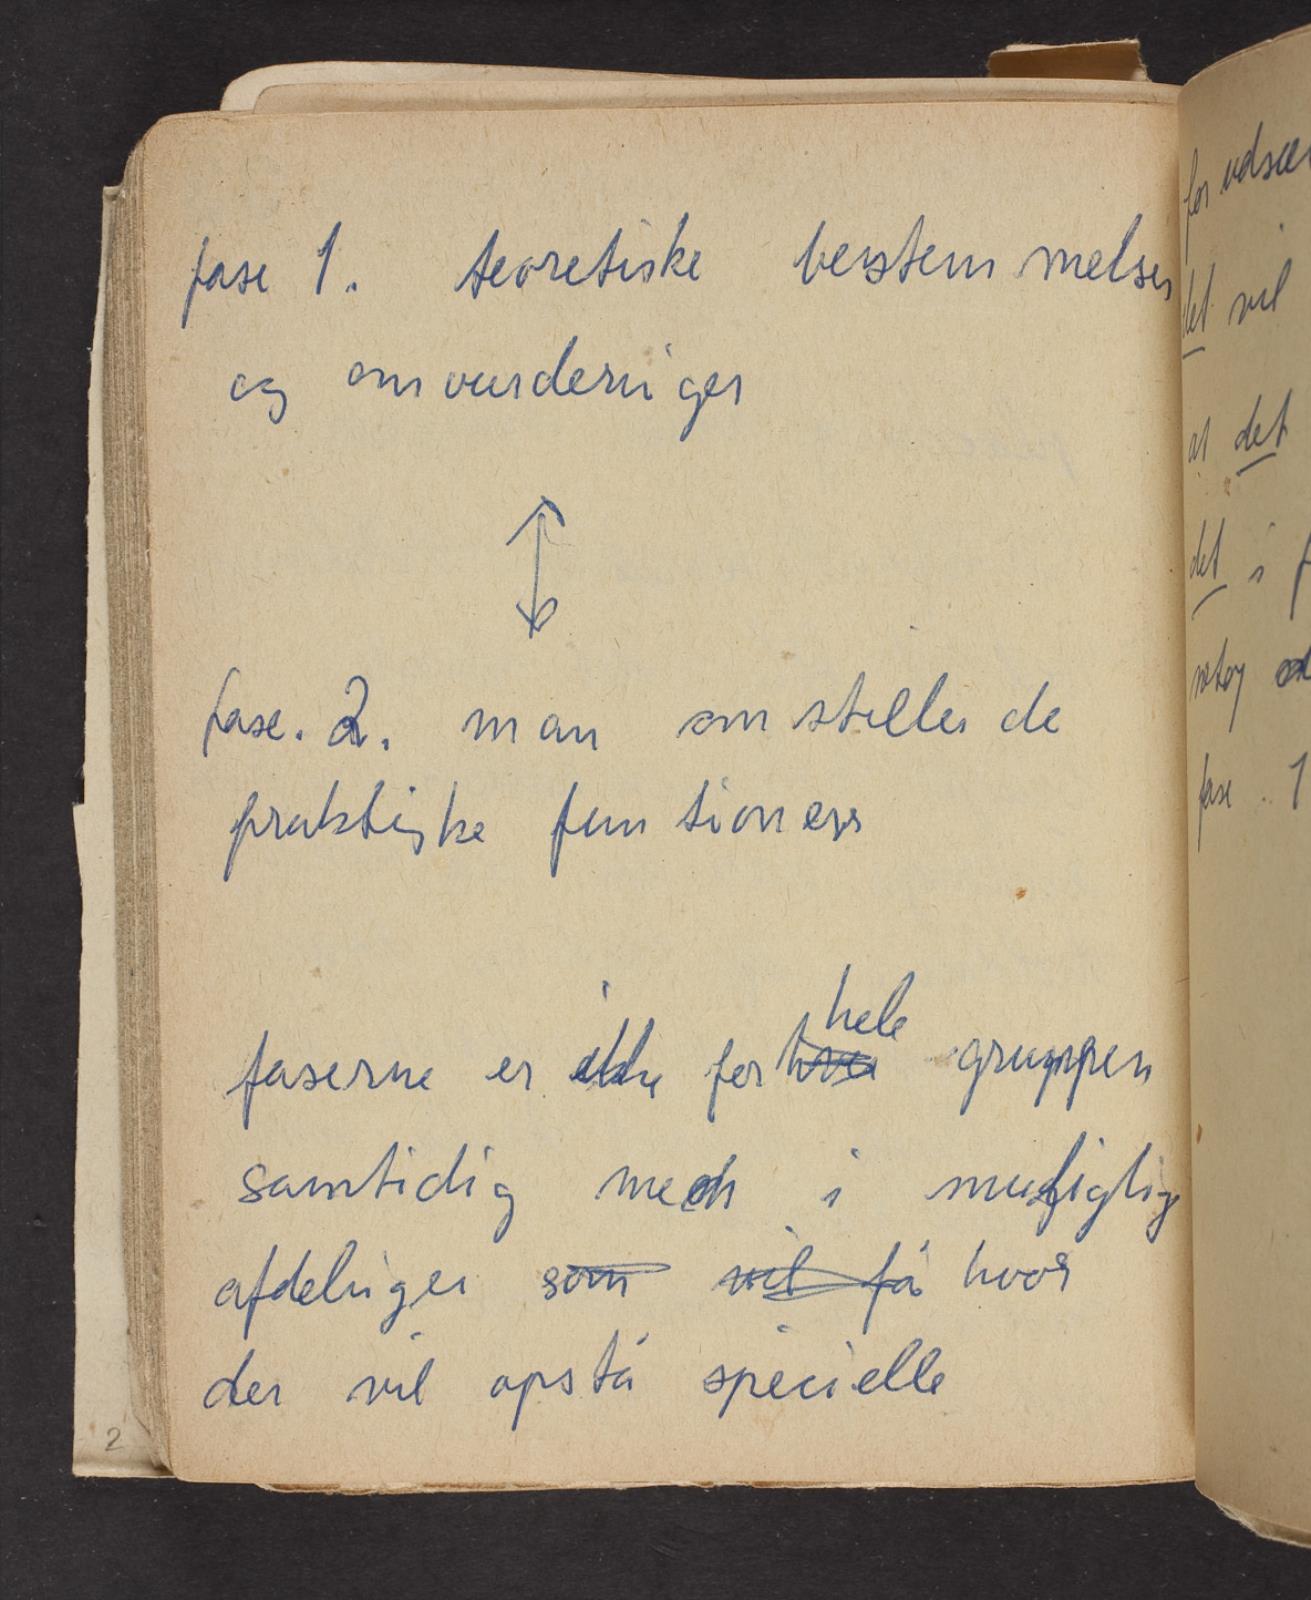 fase 1. teoretiske bestemmelser
og omvurderinger
fase. 2. man omstiller de
praktiske funtioner
hele
faserne er ikke for gruppen
samtidig men i
afdelinger som vil få hvor
der vil opstå specielle
2
det vil
at det
det i
fase. 1